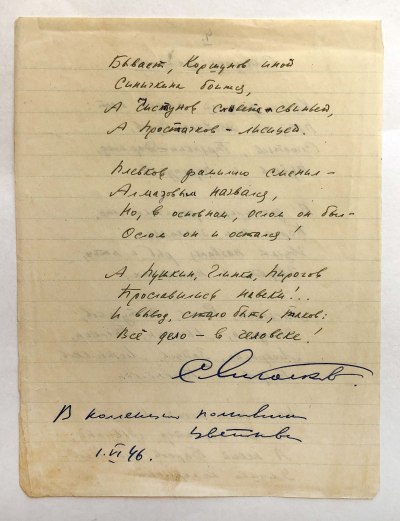 Бывает, Коршунов иной
Синичкина боится,
А Чистунов слывет свиньей,
А Простачков – лисицей.
Плевков фамилию сменил –
Алмазовым назвался,
Но, в основном, ослом он был –
Ослом он и остался!
А Пушкин, Глинка, Пирогов
Прославились навеки!..
И вывод, стало быть, таков:
Всё дело – в человеке!
В коллекцию
1.VI 46.